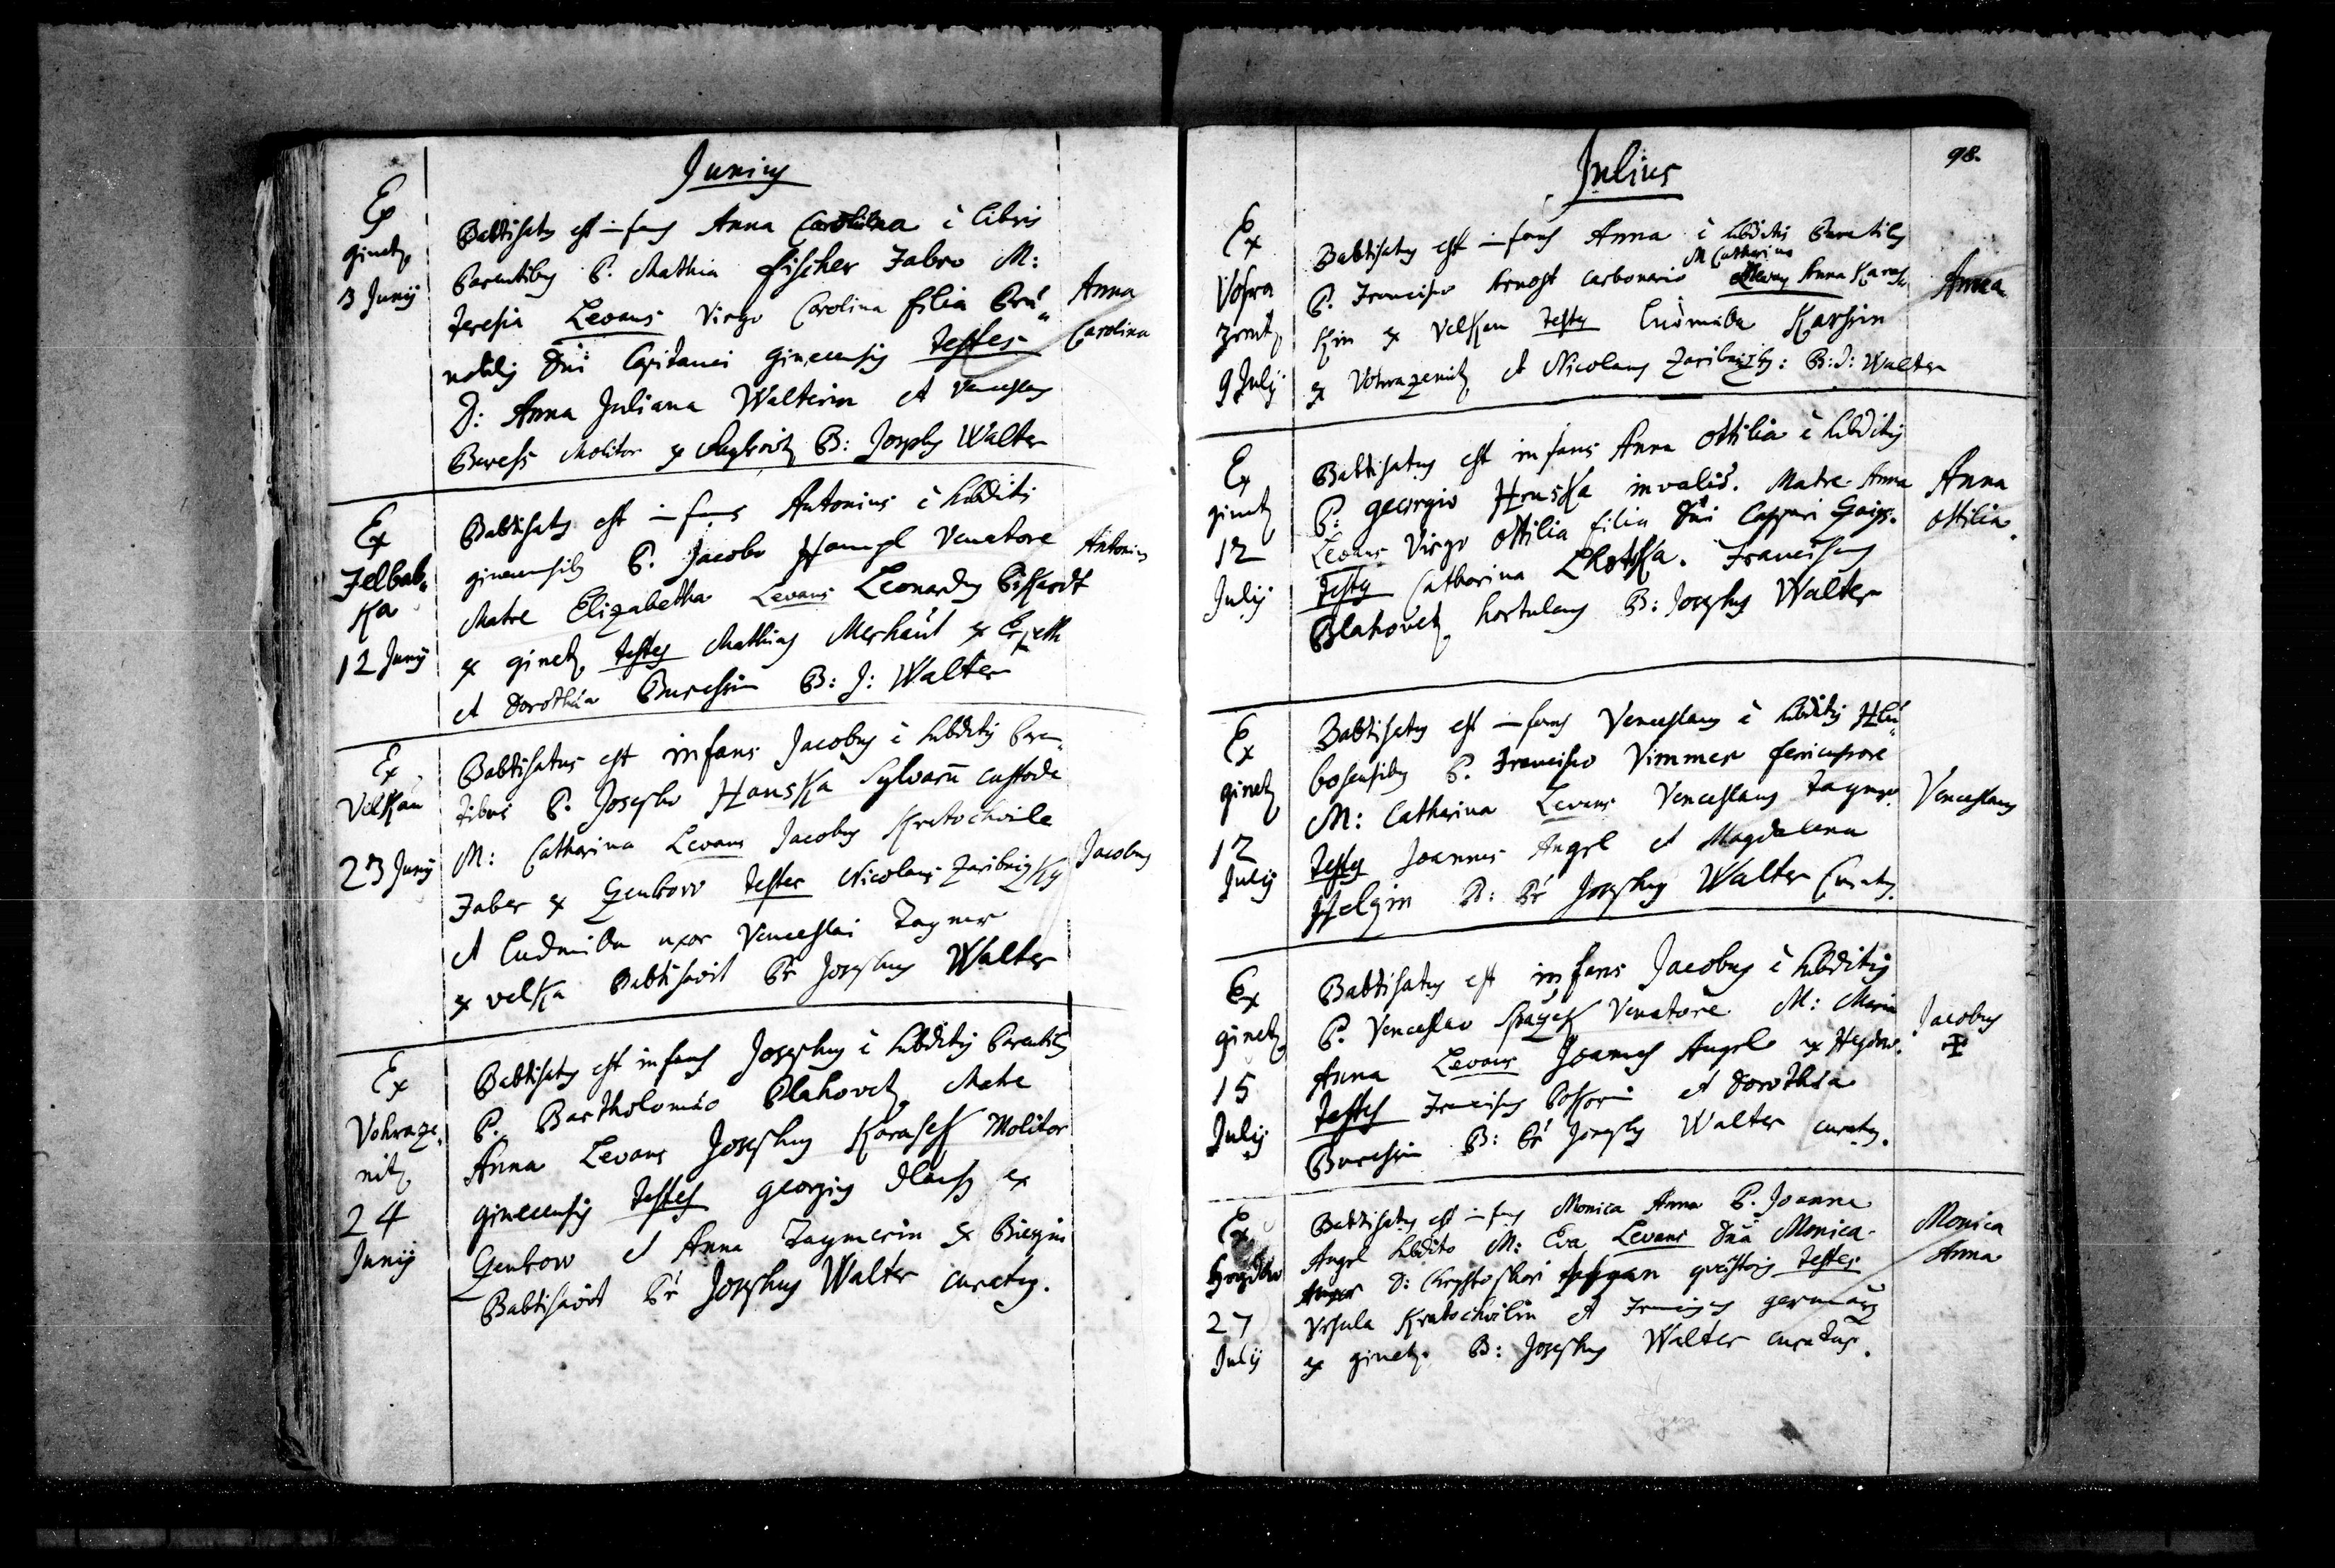 Junius
Ex
ginetz
3 Junij
Babtisatus est infans Anna Carolina è libris
Parentibus P. Mathia Fischer Fabro M:
Teresia Levans Virgo Carolina filia
nobilis Dni Capitanei ginecensis Testes
D: Anna Juliana Walterin et Venceslaus
Buress Molitor ex B: Josephus Walter
Anna
Carolina
Ex
Felbab-
ka
12 Junij
Babtisatus est infans Antonius è subditis
ginecensibus P. Jacobo Venatore
Matre Elizabetha Levans Leonardus
ex ginetz testes Mathias Merhaut ex
et Dorothea Buressin B: J: Walter
Antonius
Ex
Velkau
23 Junij
Babtisatus est infans Jacobus è subditis Paren-
tibus P. Josepho Hanska Sylvarū custode
M: Catharina Levans Jacobus Kratochvile
Faber ex testes Nicolaus Zaribnizky
et Ludmilla uxor Venceslai Taymer
ex velka Babtisavit Pr Josephus Walter
Jacobus
Ex
Vohraze-
nitz
24
Junij
Babtisatus est infans Josephus è subditis Parentibus
P. Bartholomeo Blahovetz Matre
Anna Levans Josephus Karasek Molitor
ginecensis testes georgius ex
et Anna Taymerin ex
Babtisavit Pr Josephus Walter curatus.
Jacobus
Julius
98.
Ex
Vohra
zenitz
9 July
Babtisatus est infans Anna è subditis Parentibus
M Catharina
P. Francisco Arnost carbonario Levans Anna Karas
kin ex Velkau testes Ludmilla Karssin
ex Vohrazenitz et Nicolaus Zaribnizky: B: J: Walter
Anna
Ex
ginetz
12
Julij
Babtisatus est infans Anna Ottilia è subditis
P: georgio Hruska invalid. Matre Anna
Levans Virgo Ottilia filia Dni Caspari
testes Catharina Lhotka. Franciscus
Blahovetz hortulanus B: Josephus Walter
Anna
Ottilia.
Ex
ginetz
12
July
Babtisatus est infans Venceslaus è subditis Hlu-
bosensibus P. Francisco Vimmer
M: Catharina Levans Venceslaus Taymer
testes Joannes Angel et Magdalena
B: Pr Josephus Walter Curatus.
Venceslaus
Ex
ginetz
15
July
Babtisatus est infans Jacobus è subditis
P. Venceslao Venatore M: Maria
Anna Levans Joannes Angel ex
testes Franciscus et Dorothea
Buressin B: Pr Josephus Walter curatus.
Jacobus
Ex
27
July
Babtisatus est infans Monica Anna P. Joanne
Angel subdito M: Eva Levans Dna Monica
D: testes
Ursula Kratochvilin et Franciscus
ex ginetz. B: Josephus Walter curatus.
Monica
Anna